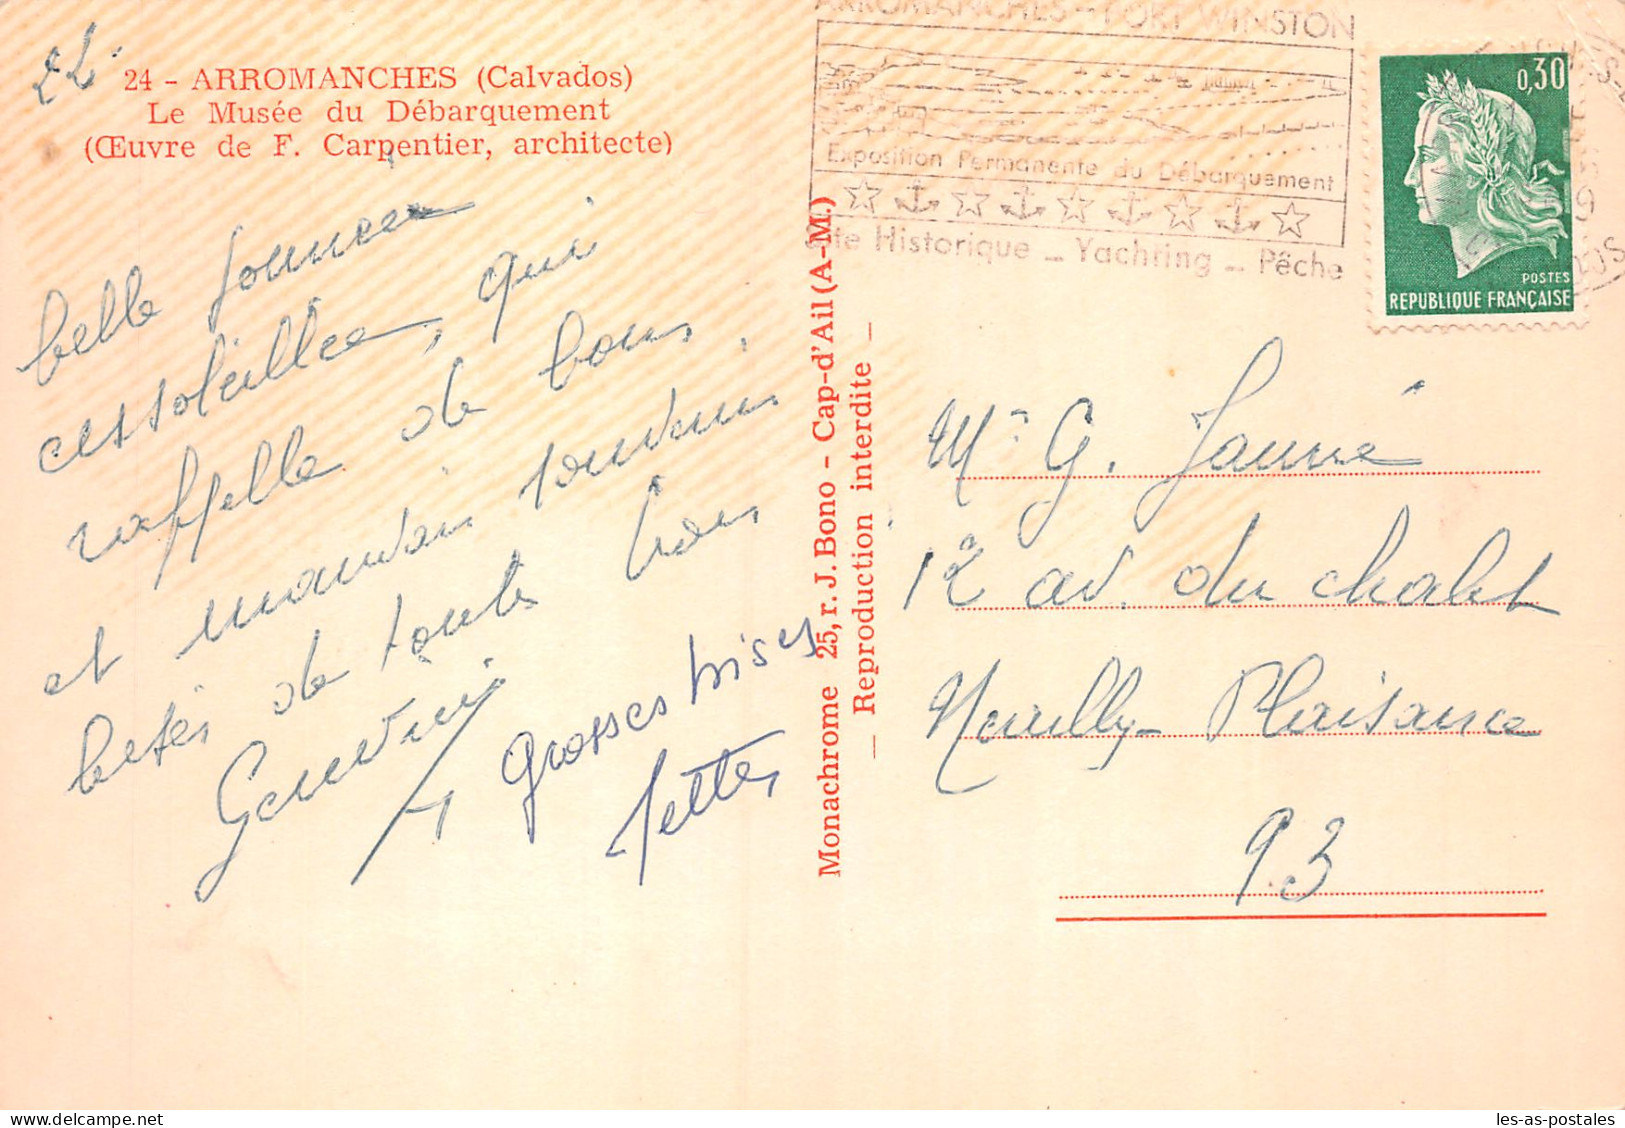 24 - ARROMANCHES (Calvados)
Le Musée du Débarquement
(Œuvre de F. Carpentier, architecte)
belle journée
ensoleillée, qui
rappelle de bons
et mauvais souvenirs.
baisers de toute
Grosses bises
Monachrome 25, r. J. Bono - Cap-d'Ail (A-M.)
— Reproduction interdite —
ARROMANCHES - PORT WINSTON
Exposition Permanente du Débarquement
Site Historique - Yachting - Pêche
0,30
POSTES
REPUBLIQUE FRANÇAISE
Mr G.
12 av. du chalet
Neuilly-Plaisance
93
delcampe.net
les-as-postales